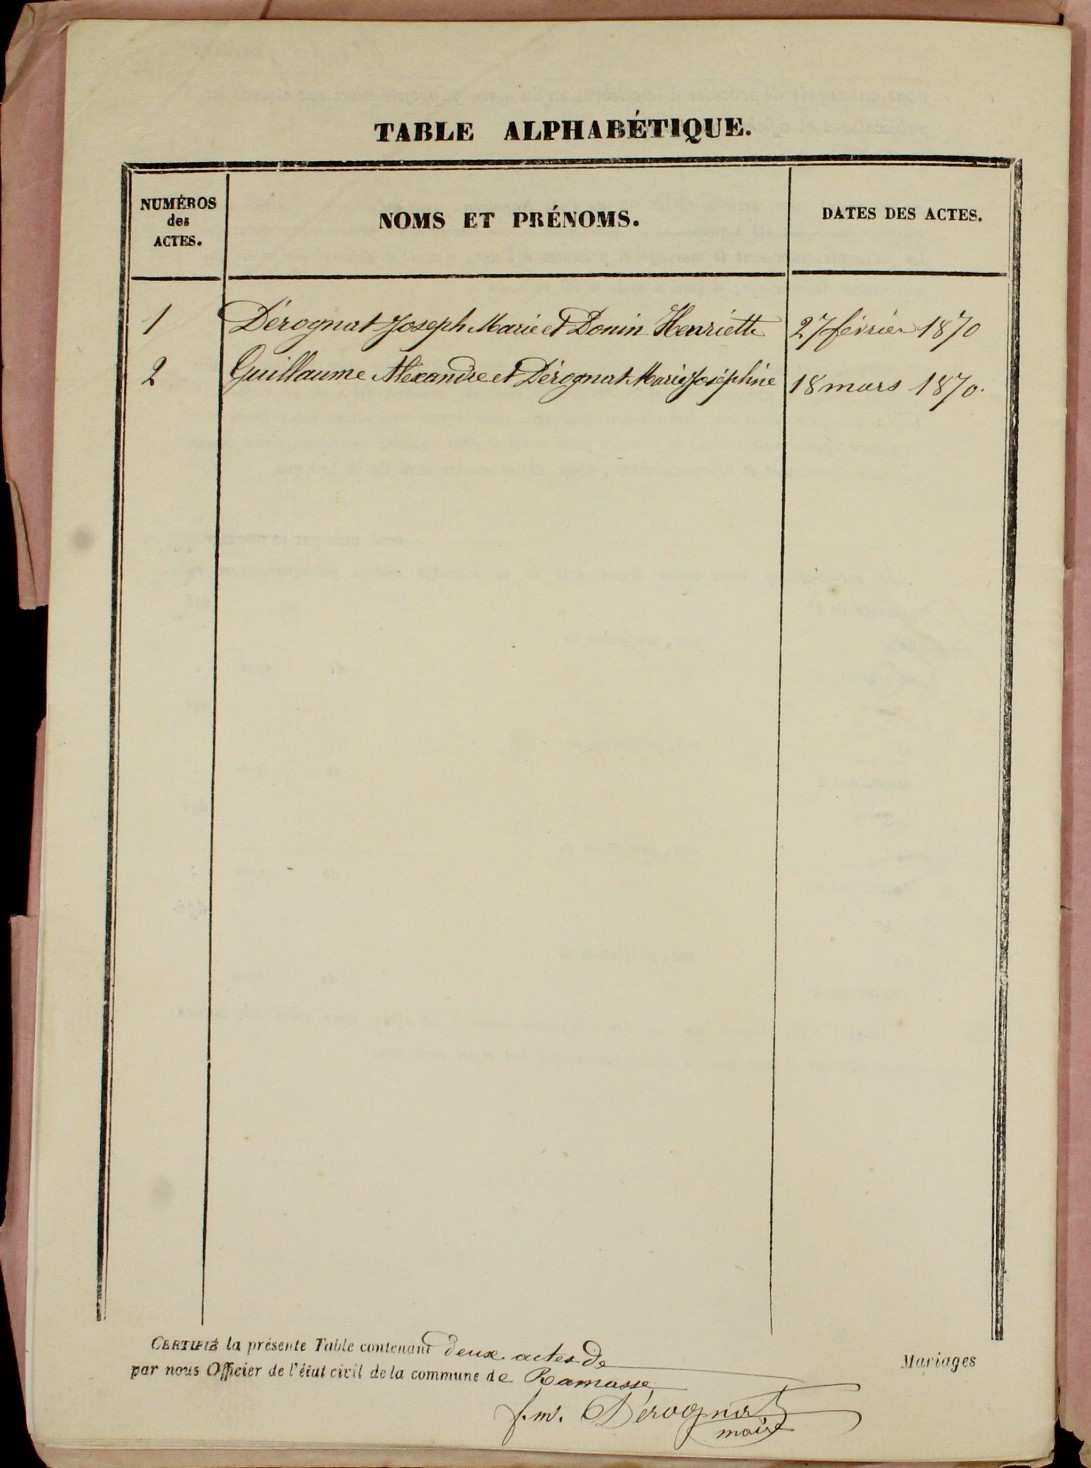 TABLE ALPHABÉTIQUE.
NUMÉROS
des
ACTES.
NOMS ET PRÉNOMS.
DATES DES ACTES.
1 Dérognat Joseph Marie et Donin Henriette 27 février 1870
2 Guillaume Alexandre et Dérognat Marie Joséphine 18 mars 1870.
CERTIFIÉ la présente Table contenant deux actes de Mariages
par nous Officier de l'état civil de la commune de Ramasse
j. m. Dérognat
maire